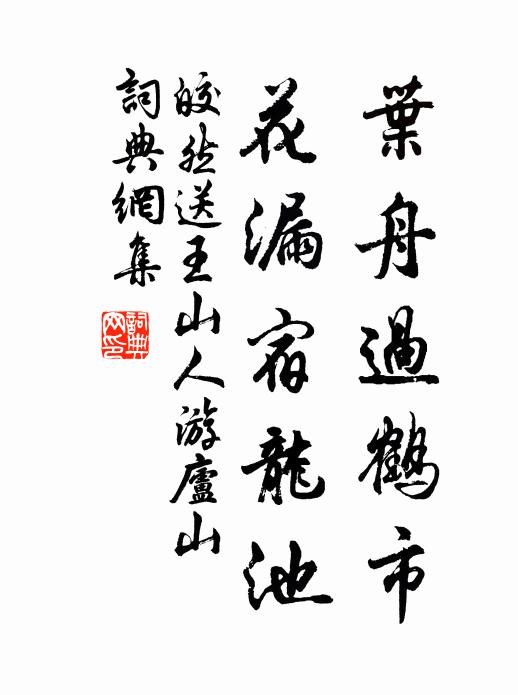 葉舟過鶴市
花漏宿龍池
皎然送王山人游廬山
詞典網集
詞典網印